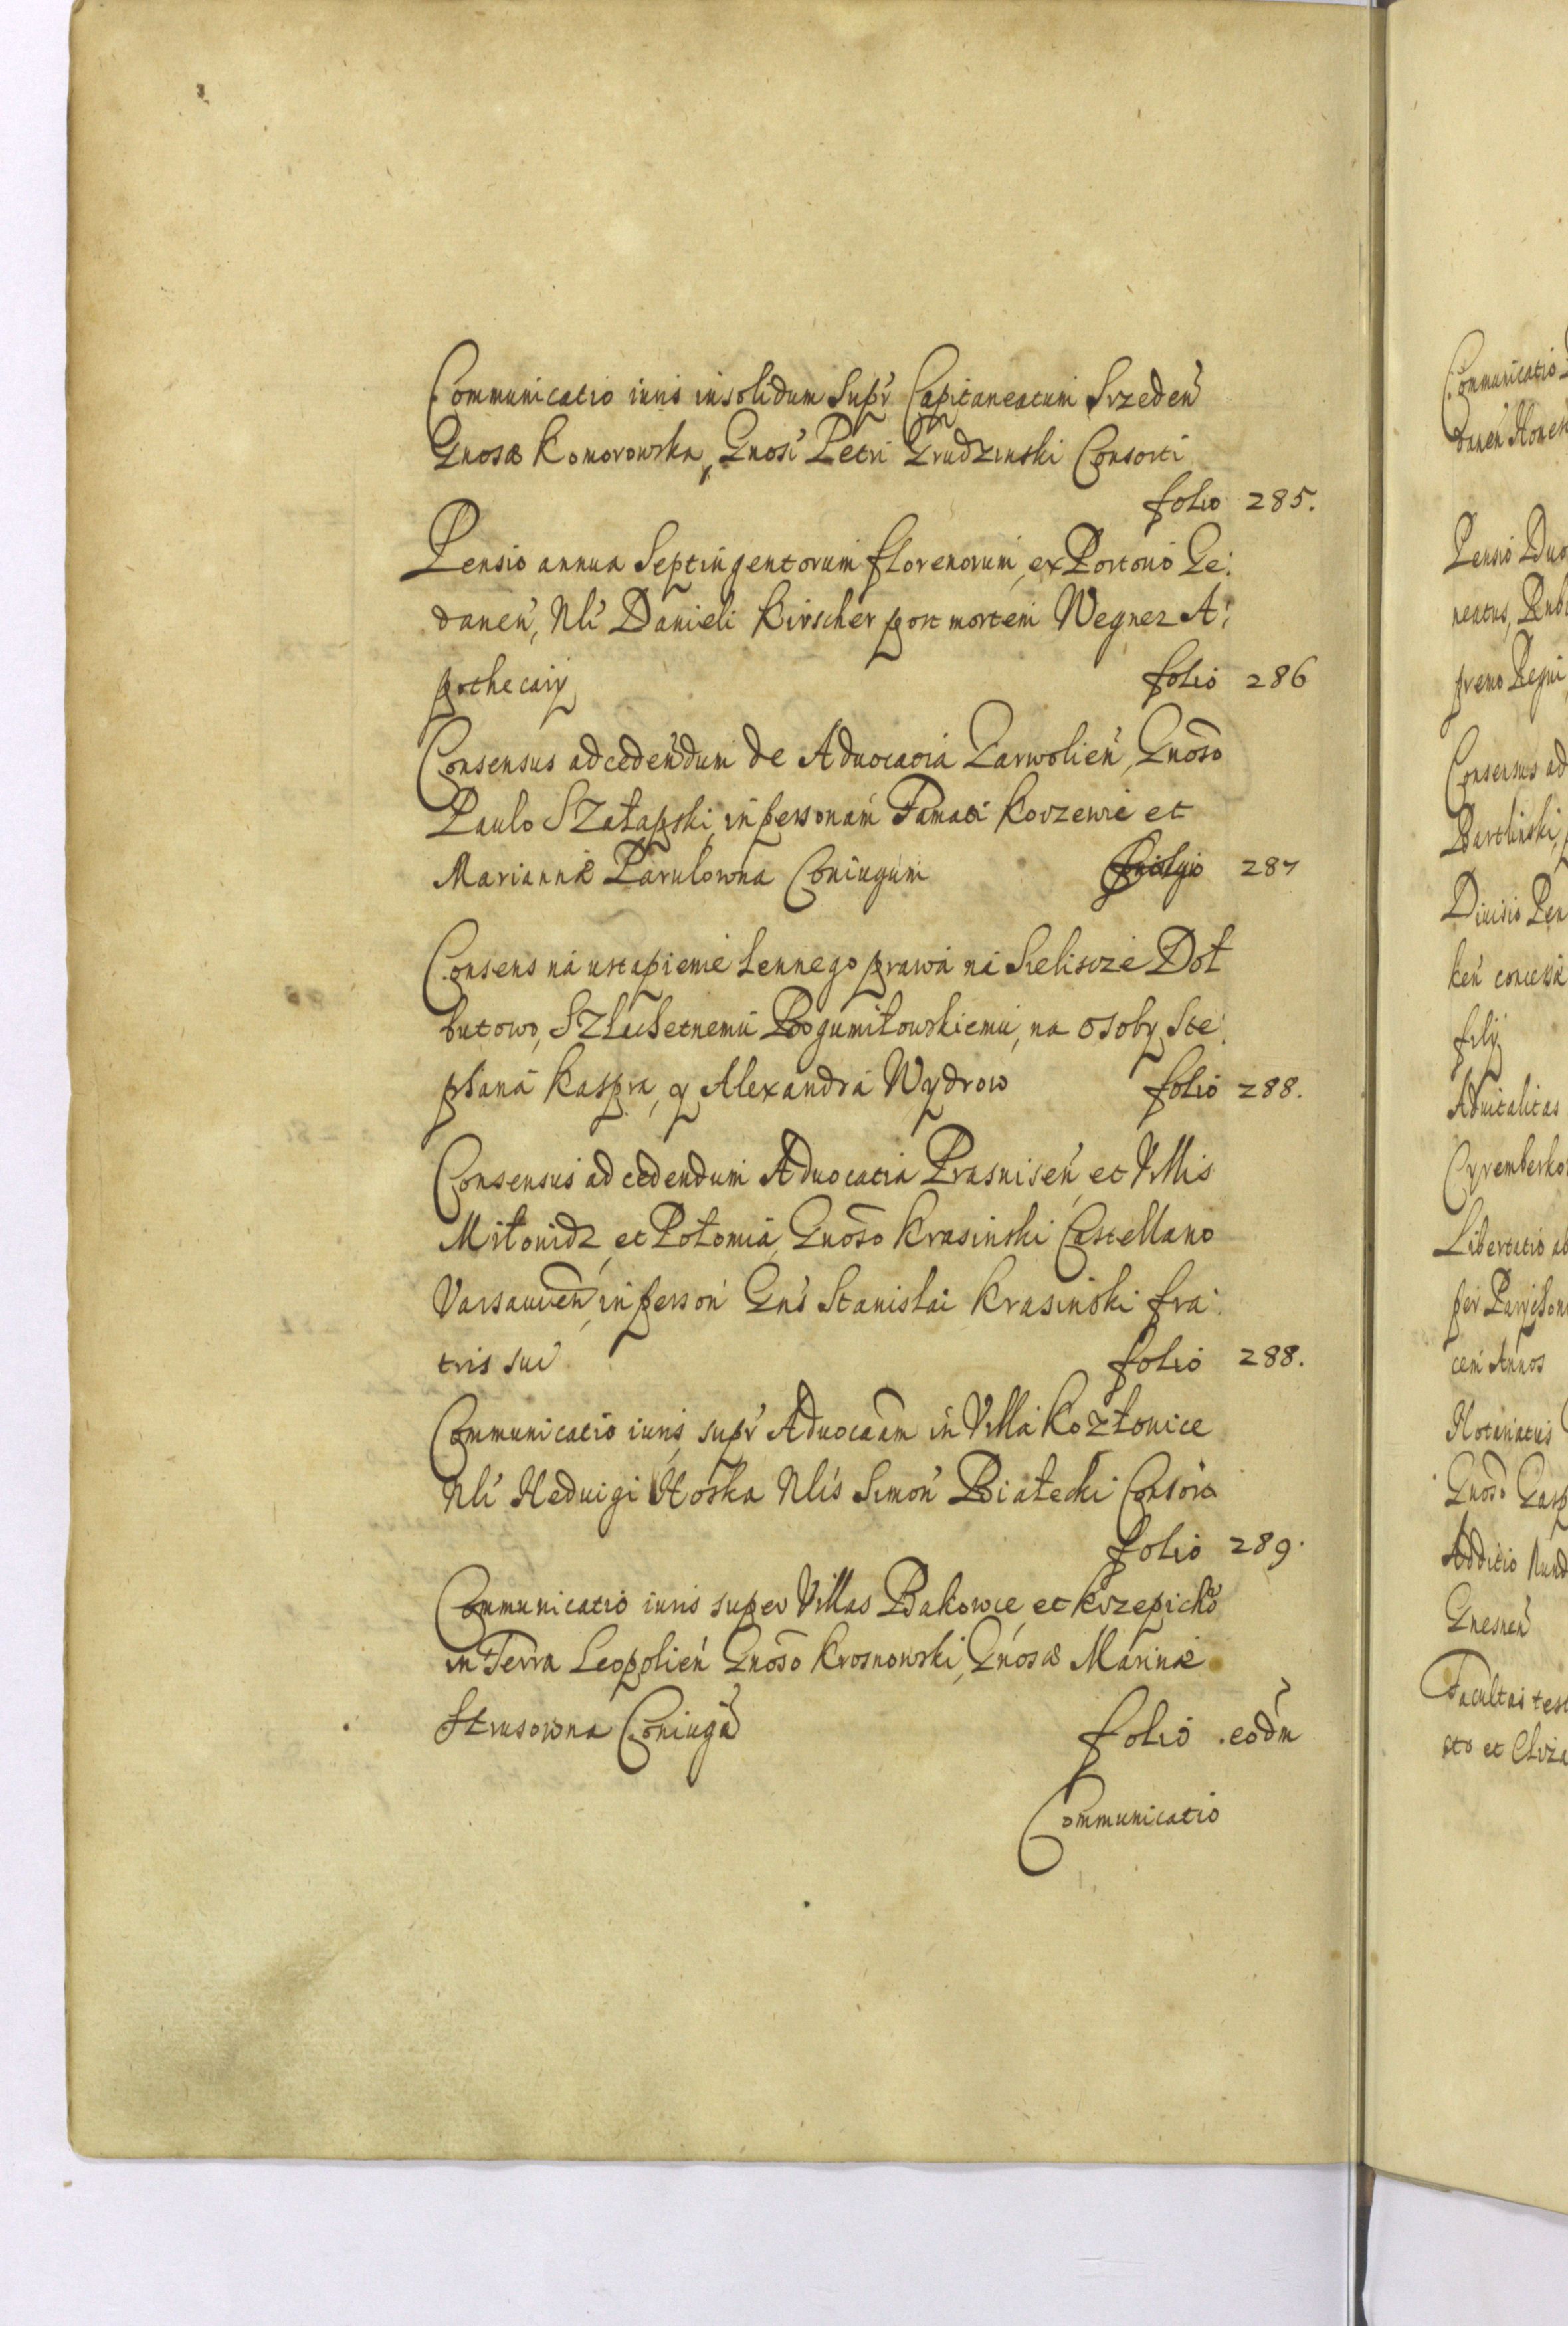 Communicatio iuris insolidum supr Capitaneatum Srzeden
Gnosæ Komorowska, Gnosi Petri Grudzinski Consorti
folio 285.
Pensio annua Septingentorum florenorum, ex Portorio Ge:
danen, Nli Danieli Kirscher post mortem Wegner A:
pothecarij folio 286
Consensus ad cedendum de Aduocatia Garwolien, Gnoso
Paulo Szałapski, in personam Famati Korzenie et
Mariannæ Parulowna Coniugum 287
Consens na ustąpienie lennego prawa na Sieliszcze Doł
butowo, Szlachetnemu Bogumiłowskiemu, na osoby Ste:
phana Kaspra, y Alexandra Wydrow folio 288.
Consensus ad cedendum Aduocatia Prasnisen, et Villis
Miłonidz, et Połomia, Gnoso Krasinski Castellano
Varsauien, in person Gns Stanislai Krasinski fra:
tris sui folio 288.
Communicatio iuris supr Aduocaam in Villa Kozłowice
Nli Heduigi Hoska Nlis Simon Białecki Consors
folio 289.
Communicatio iuris super Villas Bakowce, et Krzepicho
in Terra Leopolien Gnoso Krosnowski, Gnosæ Marinæ
Strusowna Coniuga folio eodm
Communicatio
Communicatio
danen
Pensio Duo
neatus, Pub
premo Regni
Consensus ad
Bartlinski,
Diuisio Pen
ken concessa
filij
Aduitalitas
Cyremberko
Libertatio ab
per
cem Annos
Notariatus
Gnoso Gasp
Additio Nund
Gnesnen
Facultas test
cto et